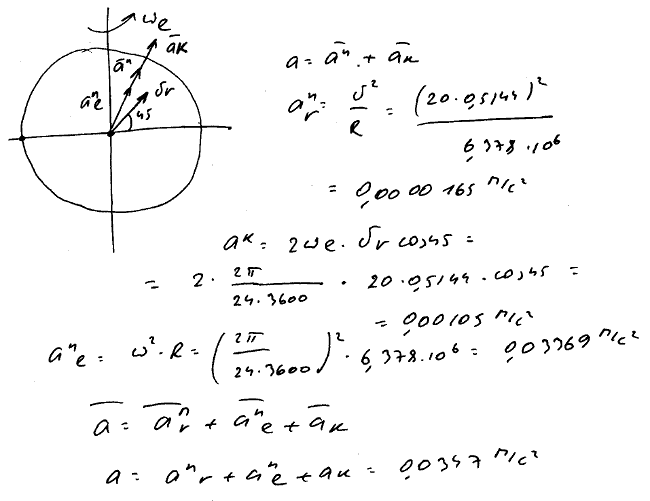 ωe
a̅к
a̅ⁿ
a̅ⁿe
υr
45
a = a̅ⁿ. + a̅к
aⁿr = υ²/R = (20·0,5144)²/6,378·10⁶
= 0,0000165 м/с²
aк = 2ωe·υr cos45 =
= 2 · 2π/24·3600 · 20·0,5144·cos45 =
= 0,00105 м/с²
aⁿe = ω²·R = (2π/24·3600)² · 6,378·10⁶ = 0,03369 м/с²
a̅ = a̅ⁿr + a̅ⁿe + a̅к
a = aⁿr + aⁿe + aк = 0,0347 м/с²